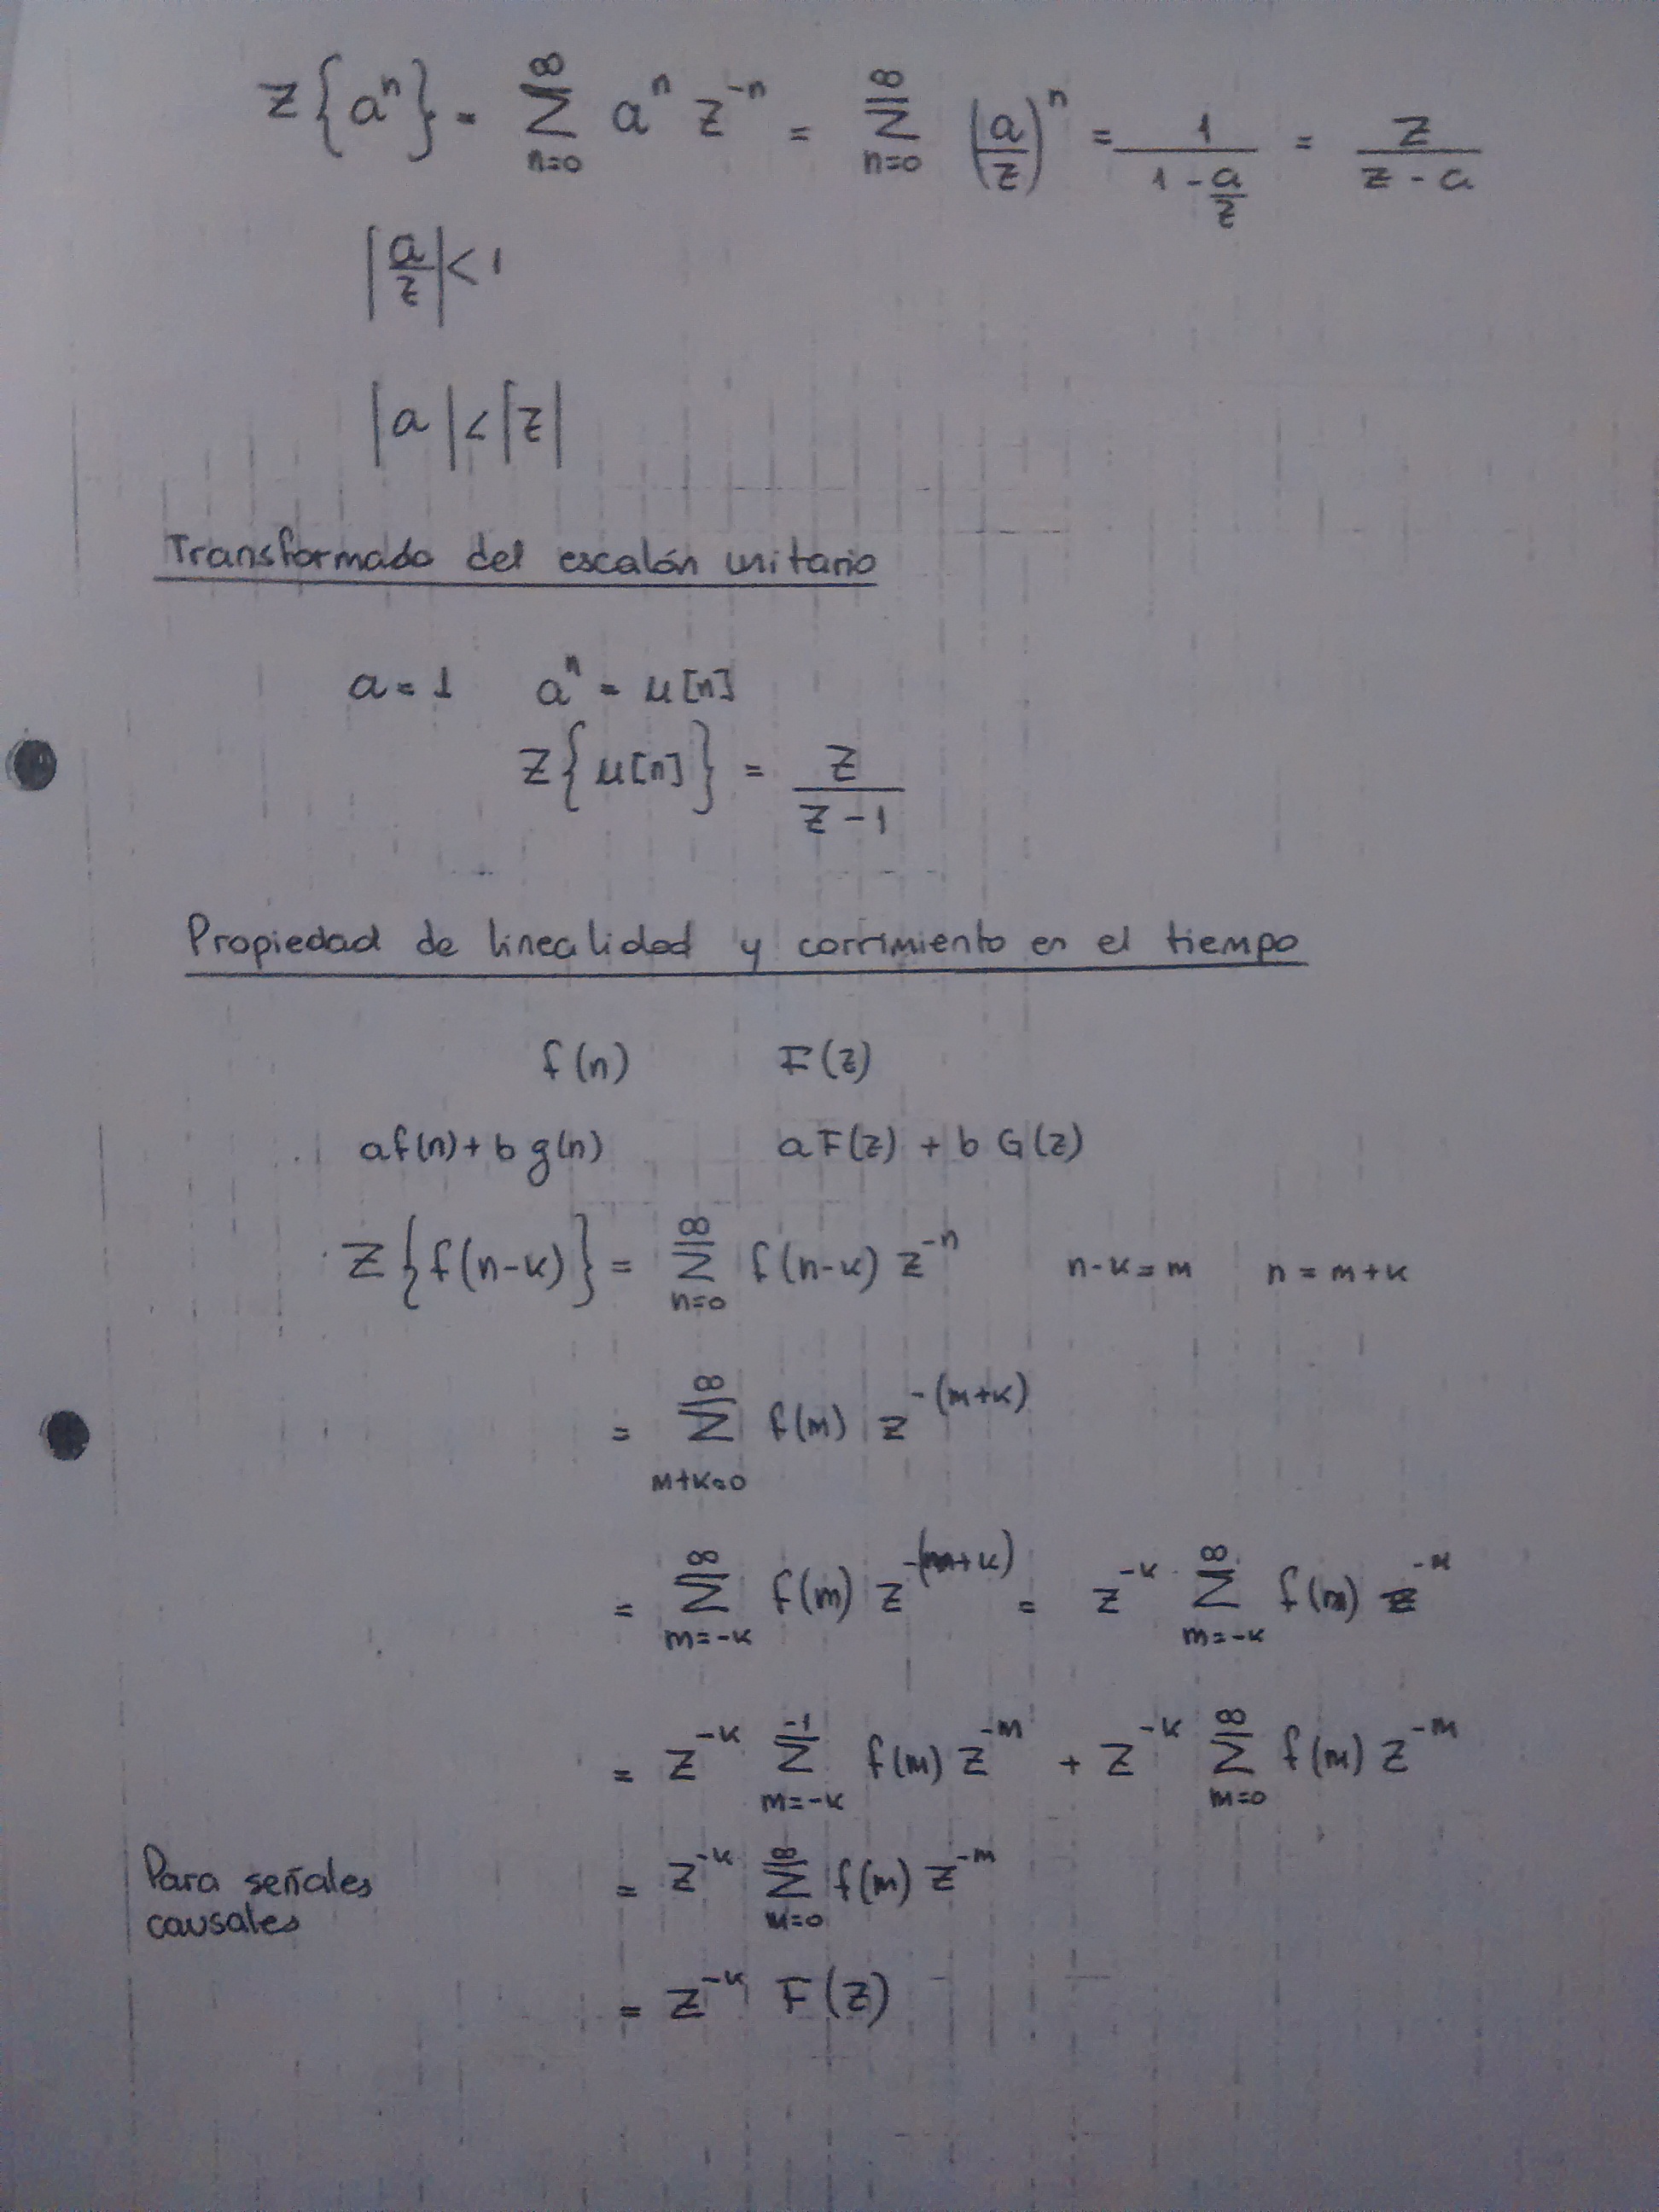 Z{aⁿ} = ∑_{n=0}^{∞} aⁿ z⁻ⁿ = ∑_{n=0}^{∞} (a/z)ⁿ = 1/(1 - a/z) = z/(z - a)
|a/z| < 1
|a| < |z|
Transformada del escalón unitario
a = 1 aⁿ = μ[n]
Z{μ[n]} = z/(z - 1)
Propiedad de linealidad y corrimiento en el tiempo
f(n) F(z)
af(n) + b g(n) a F(z) + b G(z)
Z{f(n-k)} = ∑_{n=0}^{∞} f(n-k) z^{-n} n-k = m n = m+k
= ∑_{m+k=0}^{∞} f(m) z^{-(m+k)}
= ∑_{m=-k}^{∞} f(m) z^{-(m+k)} = z^{-k} ∑_{m=-k}^{∞} f(m) z^{-m}
= z^{-k} ∑_{m=-k}^{-1} f(m) z^{-m} + z^{-k} ∑_{m=0}^{∞} f(m) z^{-m}
Para señales = z^{-k} ∑_{m=0}^{∞} f(m) z^{-m}
causales
= z^{-k} F(z)